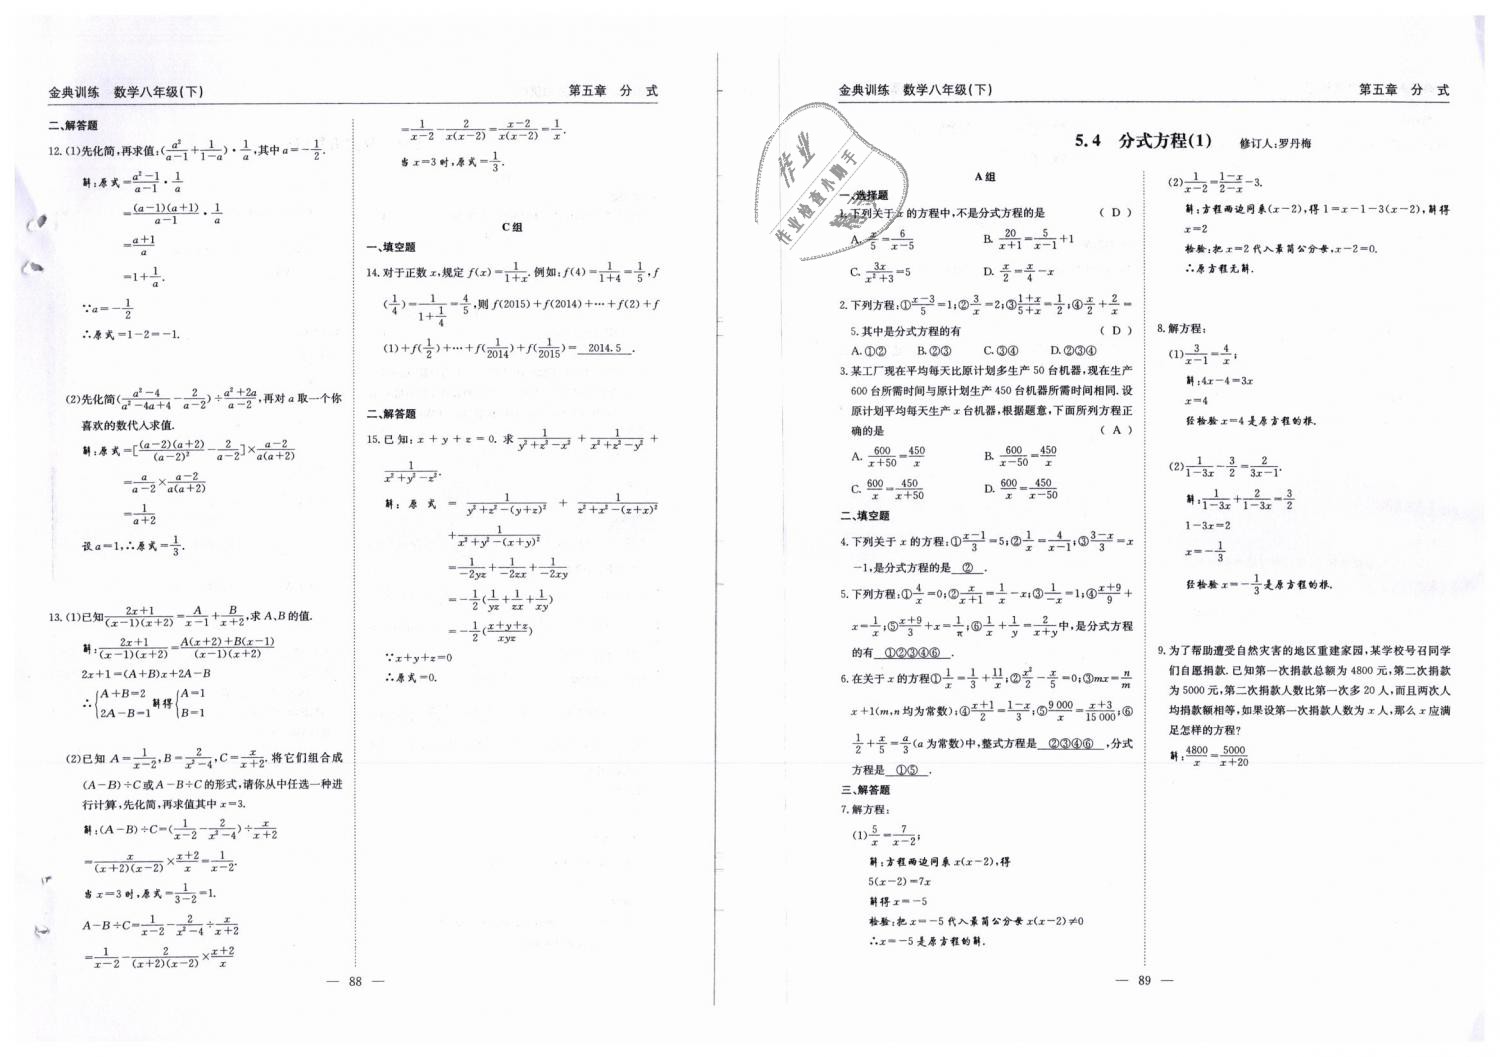 金典训练 数学八年级(下) 第五章 分 式
二、解答题
12.(1)先化简,再求值:(a²/(a-1)+1/(1-a))·1/a,其中a=-1/2.
解:原式=(a²-1)/(a-1)·1/a
=(a-1)(a+1)/(a-1)·1/a
=(a+1)/a
=1+1/a.
∵a=-1/2
∴原式=1-2=-1.
(2)先化简((a²-4)/(a²-4a+4)-2/(a-2))÷(a²+2a)/(a-2),再对a取一个你
喜欢的数代入求值.
解:原式=[(a-2)(a+2)/(a-2)²-2/(a-2)]×(a-2)/(a(a+2))
=a/(a-2)×(a-2)/(a(a+2))
=1/(a+2)
设a=1,∴原式=1/3.
13.(1)已知(2x+1)/((x-1)(x+2))=A/(x-1)+B/(x+2),求A、B的值.
解:(2x+1)/((x-1)(x+2))=(A(x+2)+B(x-1))/((x-1)(x+2))
2x+1=(A+B)x+2A-B
∴{A+B=2 2A-B=1 解得{A=1 B=1
(2)已知 A=1/(x-2),B=2/(x²-4),C=x/(x+2).将它们组合成
(A-B)÷C或A-B÷C的形式,请你从中任选一种进
行计算,先化简,再求值其中x=3.
解:(A-B)÷C=(1/(x-2)-2/(x²-4))÷x/(x+2)
=x/((x+2)(x-2))×(x+2)/x=1/(x-2).
当x=3时,原式=1/(3-2)=1.
A-B÷C=1/(x-2)-2/(x²-4)÷x/(x+2)
=1/(x-2)-2/((x+2)(x-2))×(x+2)/x
=1/(x-2)-2/(x(x-2))=(x-2)/(x(x-2))=1/x.
当x=3时,原式=1/3.
C组
一、填空题
14.对于正数x,规定f(x)=1/(1+x).例如:f(4)=1/(1+4)=1/5,f
(1/4)=1/(1+1/4)=4/5,则f(2015)+f(2014)+…+f(2)+f
(1)+f(1/2)+…+f(1/2014)+f(1/2015)= 2014.5 .
二、解答题
15.已知:x+y+z=0.求1/(y²+z²-x²)+1/(x²+z²-y²)+
1/(x²+y²-z²).
解:原式=1/(y²+z²-(y+z)²)+1/(z²+x²-(z+x)²)
+1/(x²+y²-(x+y)²)
=1/(-2yz)+1/(-2zx)+1/(-2xy)
=-1/2(1/yz+1/zx+1/xy)
=-1/2((x+y+z)/xyz)
∵x+y+z=0
∴原式=0.
— 88 —
金典训练 数学八年级(下) 第五章 分 式
5.4 分式方程(1) 修订人:罗丹梅
作业
作业检查小助手
A组
一、选择题
1.下列关于x的方程中,不是分式方程的是 ( D )
A.x/5=6/(x-5) B.20/(x+1)=5/(x-1)+1
C.3x/(x²+3)=5 D.x/2=x/4-x
2.下列方程:①(x-3)/5=1;②3/x=2;③(1+x)/(5+x)=1/2;④x/2+2/x=
5.其中是分式方程的有 ( D )
A.①② B.②③ C.③④ D.②③④
3.某工厂现在平均每天比原计划多生产50台机器,现在生产
600台所需时间与原计划生产450台机器所需时间相同.设
原计划平均每天生产x台机器,根据题意,下面所列方程正
确的是 ( A )
A.600/(x+50)=450/x B.600/(x-50)=450/x
C.600/x=450/(x+50) D.600/x=450/(x-50)
二、填空题
4.下列关于x的方程:①(x-1)/3=5;②1/x=4/(x-1);③(3-x)/3=x
-1,是分式方程的是 ② .
5.下列方程:①4/x=0;②x/(x+1)=1/x-x;③1/(-x)=1;④(x+9)/9+
x=1/x;⑤(x+9)/3+x=1/π;⑥1/x+1/y=2/(x+y)中,是分式方程
的有 ①②③④⑥ .
6.在关于x的方程①1/x=1/3+11/x;②x²/2-x/5=0;③mx=n/m
x+1(m,n均为常数);④(x+1)/2=(1-x)/3;⑤9 000/x=(x+3)/15 000;⑥
1/2+x/5=a/3(a为常数)中,整式方程是 ②③④⑥ ,分式
方程是 ①⑤ .
三、解答题
7.解方程:
(1)5/x=7/(x-2);
解:方程两边同乘x(x-2),得
5(x-2)=7x
解得x=-5
检验:把x=-5代入最简公分母x(x-2)≠0
∴x=-5是原方程的解.
(2)1/(x-2)=(1-x)/(2-x)-3.
解:方程两边同乘(x-2),得1=x-1-3(x-2),解得
x=2
检验:把x=2代入最简公分母,x-2=0.
∴原方程无解.
8.解方程:
(1)3/(x-1)=4/x;
解:4x-4=3x
x=4
经检验x=4是原方程的根.
(2)1/(1-3x)-3/2=2/(3x-1).
解:1/(1-3x)+2/(1-3x)=3/2
1-3x=2
x=-1/3
经检验x=-1/3是原方程的根.
9.为了帮助遭受自然灾害的地区重建家园,某学校号召同学
们自愿捐款.已知第一次捐款总额为4800元,第二次捐款
为5000元,第二次捐款人数比第一次多20人,而且两次人
均捐款额相等,如果设第一次捐款人数为x人,那么x应满
足怎样的方程?
解:4800/x=5000/(x+20)
— 89 —